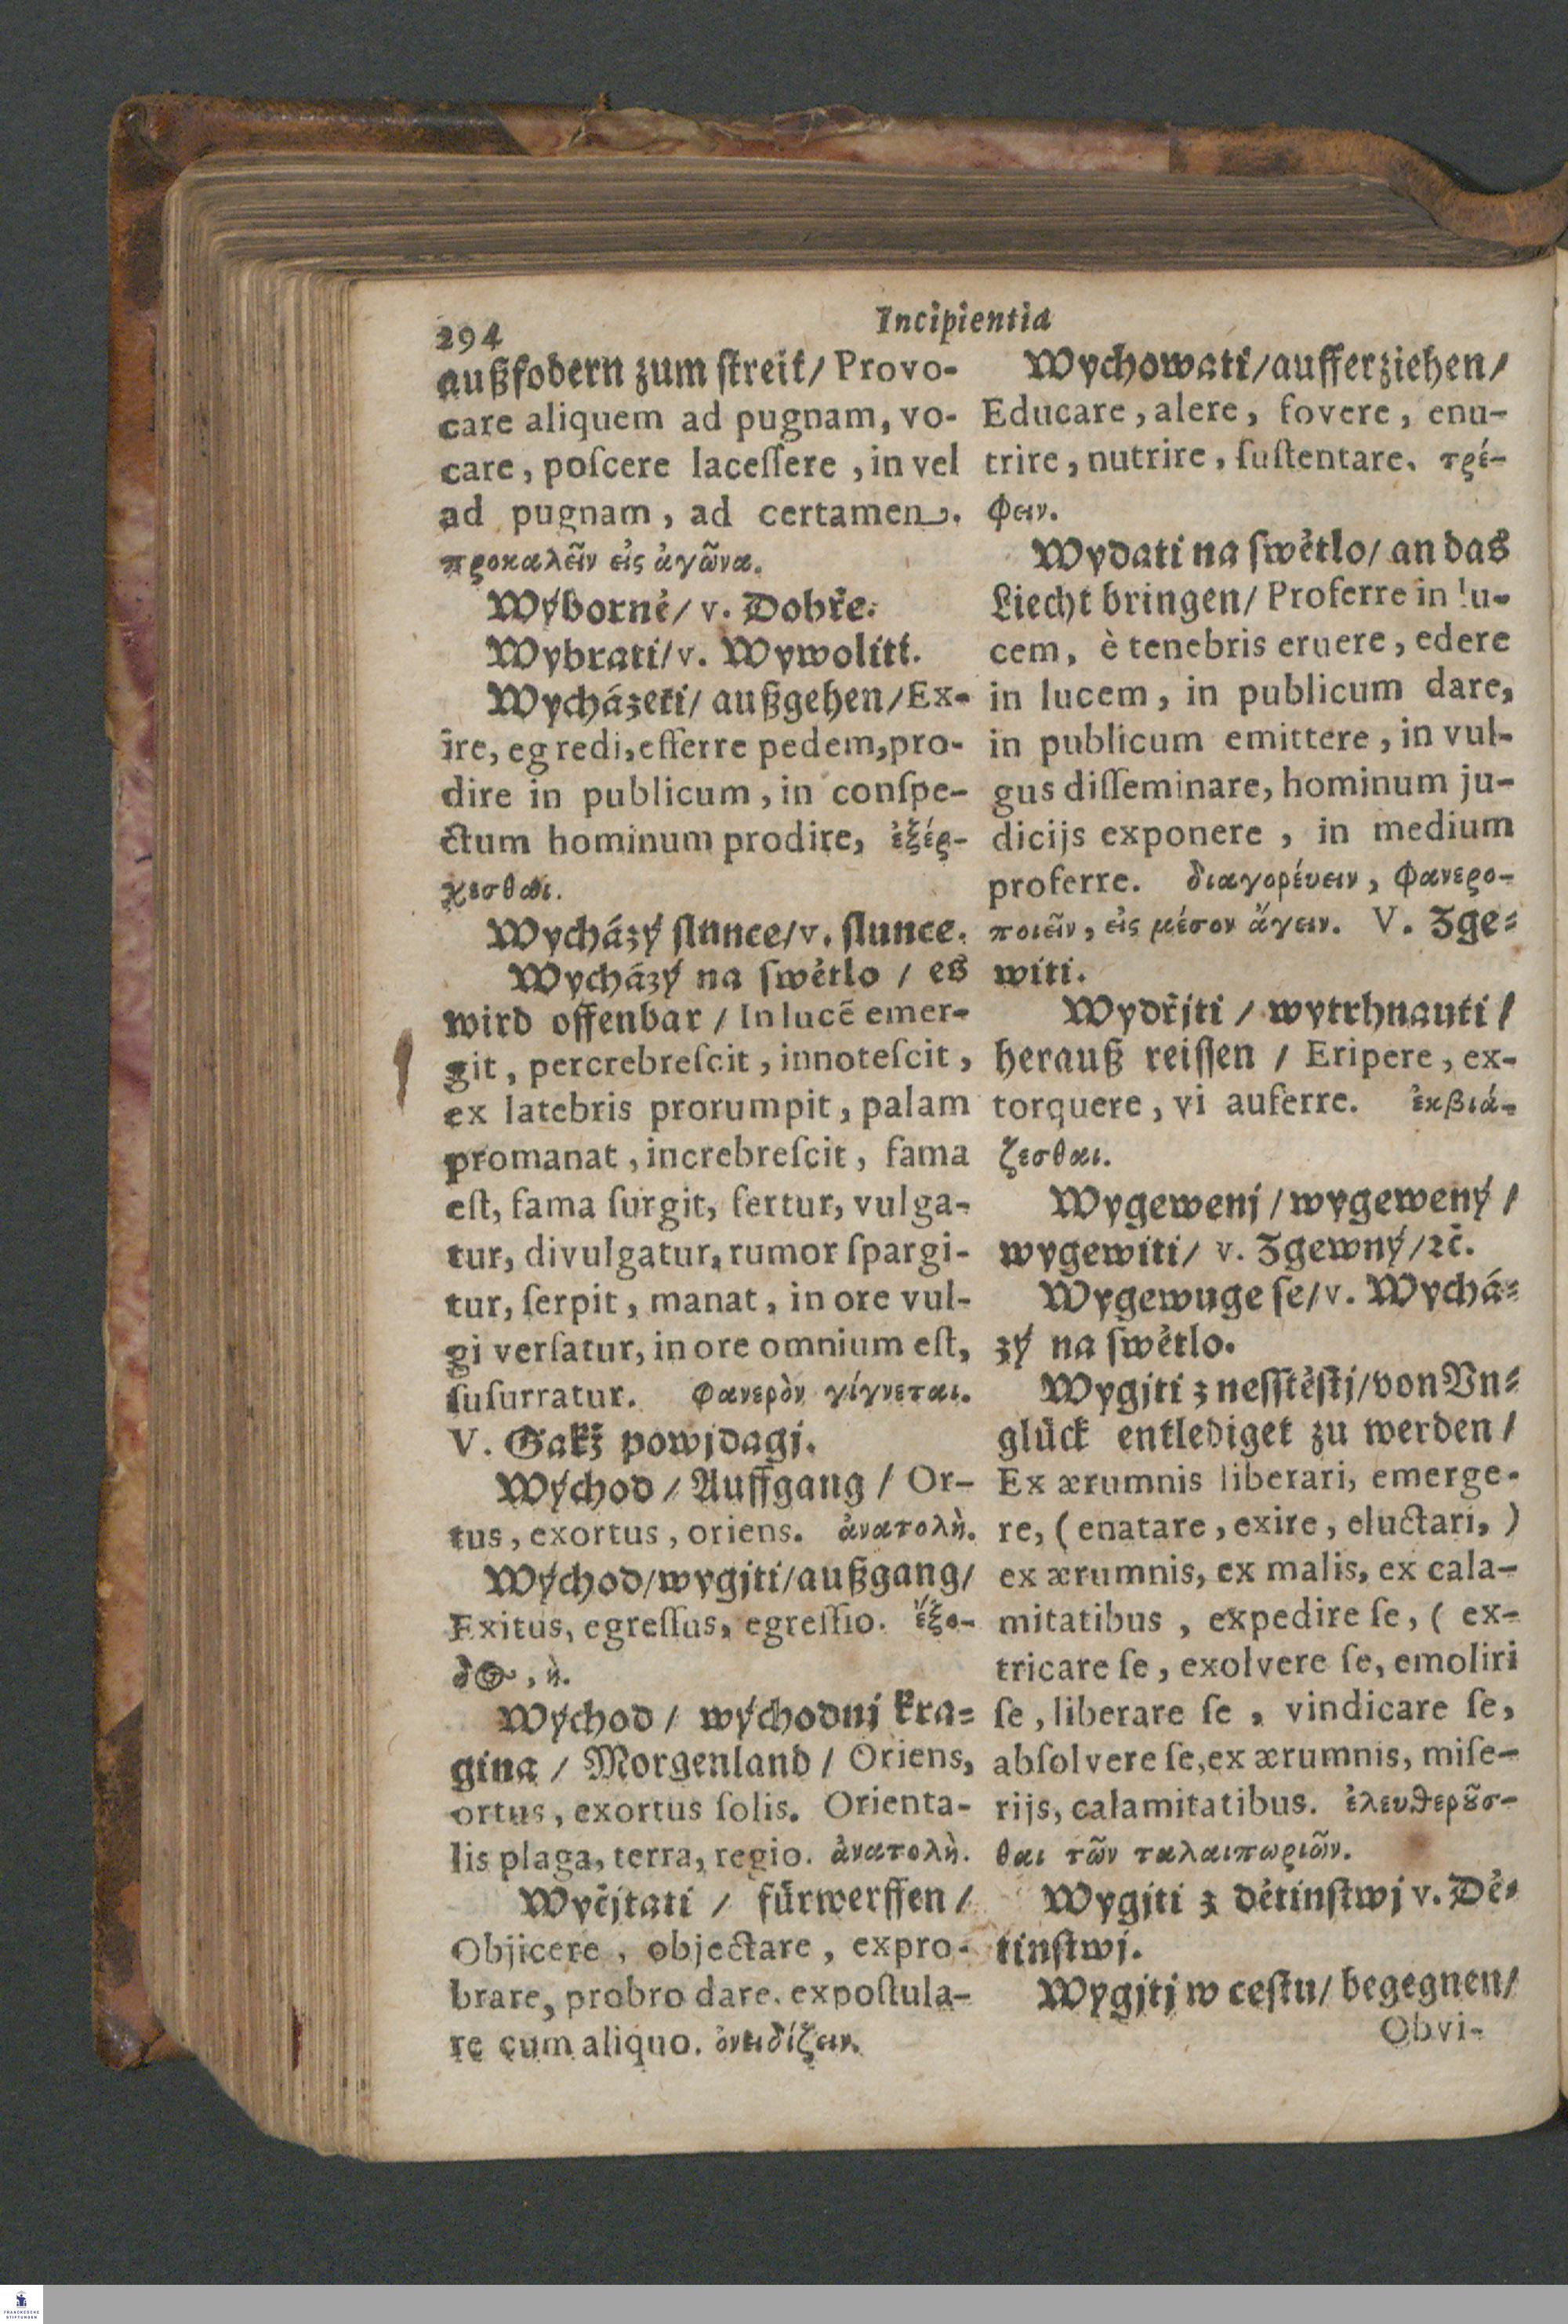 294
Incipientia
außfodern zum ſtreit/ Provo-
care aliquem ad pugnam, vo-
care, poſcere laceſſere, in vel
ad pugnam, ad certamen.
προκαλεῖν εἰς ἀγῶνα.
Wýborně/ v. Dobře.
Wybrati/ v. Wywoliti.
Wycházeti/ außgehen/ Ex-
ire, egredi, efferre pedem, pro-
dire in publicum, in conſpe-
ctum hominum prodire, ἐξέρ-
χεσθαι.
Wycházý ſlunce/ v. ſlunce.
Wycházý na ſwětlo / es
wird offenbar / In lucẽ emer-
git, percrebreſcit, innoteſcit,
ex latebris prorumpit, palam
promanat, increbreſcit, fama
eſt, fama ſurgit, fertur, vulga-
tur, divulgatur, rumor ſpargi-
tur, ſerpit, manat, in ore vul-
gi verſatur, in ore omnium eſt,
ſuſurratur. φανερὸν γίγνεται.
V. Gakž powjdagj.
Wýchod / Auffgang / Or-
tus, exortus, oriens. ἀνατολὴ.
Wýchod/ wygjti/ außgang/
Exitus, egreſſus, egreſſio. ἔξο-
δος, ἡ.
Wýchod / wýchodnj kra-
gina / Morgenland / Oriens,
ortus, exortus ſolis. Orienta-
lis plaga, terra, regio. ἀνατολὴ.
Wyčjtati / fürwerffen /
Objicere, objectare, expro-
brare, probro dare. expoſtula-
re cum aliquo. ὀνειδίζειν.
Wychowati/ aufferziehen/
Educare, alere, fovere, enu-
trire, nutrire, ſuſtentare. τρέ-
φειν.
Wydati na ſwětlo/ an das
Liecht bringen/ Proferre in lu-
cem, è tenebris eruere, edere
in lucem, in publicum dare,
in publicum emittere, in vul-
gus diſſeminare, hominum ju-
dicijs exponere, in medium
proferre. διαγορέυειν, φανερο-
ποιεῖν, εἰς μέσον ἄγειν. V. Zge-
witi.
Wydřjti / wytrhnauti /
herauß reiſſen / Eripere, ex-
torquere, vi auferre. ἐκβιά-
ζεσθαι.
Wygewenj / wygewený /
wygewiti/ v. Zgewný/ ꝛč.
Wygewuge ſe/ v. Wychá-
zý na ſwětlo.
Wygjti z neſſtěſtj/ von Vn-
glück entlediget zu werden /
Ex ærumnis liberari, emerge-
re, (enatare, exire, eluctari,)
ex ærumnis, ex malis, ex cala-
mitatibus, expedire ſe, (ex-
tricare ſe, exolvere ſe, emoliri
ſe, liberare ſe, vindicare ſe,
abſolvere ſe, ex ærumnis, miſe-
rijs, calamitatibus. ἐλευθερȣ͂σ-
θαι τῶν ταλαιπωριῶν.
Wygjti z dětinſtwj v. Dě-
tinſtwj.
Wygjtj w ceſtu/ begegnen/
Obvi-
FRANCKESCHE
STIFTUNGEN